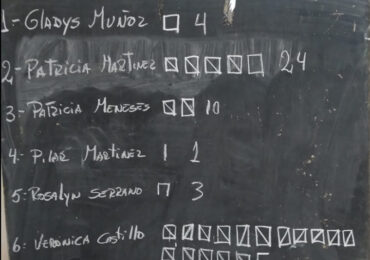 1- GLADYS MUÑOZ 4
2- PATRICIA MARTINEZ 24
3- PATRICIA MENESES 10
4- PILAR MARTINEZ 1
5: ROSALYN SERRANO 3
6: VERONICA COSTILLO